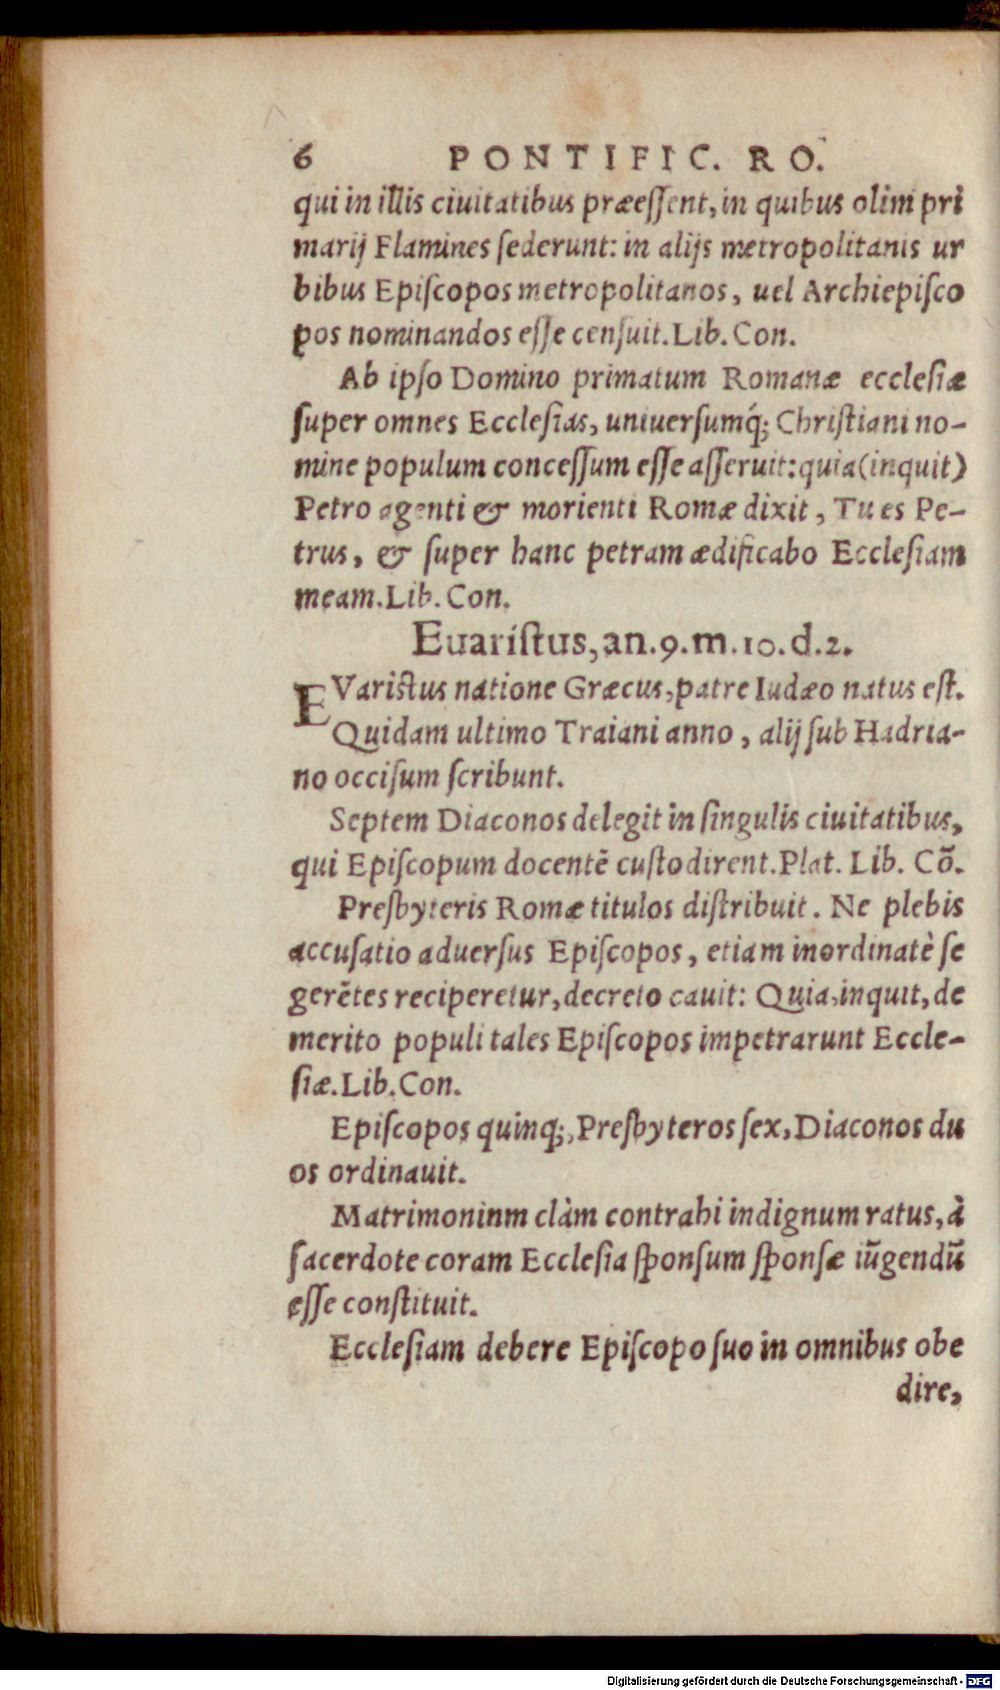 6 PONTIFIC. RO.
qui in illis ciuitatibus præeſſent, in quibus olim pri
marij Flamines ſederunt: in alijs metropolitanis ur
bibus Epiſcopos metropolitanos, uel Archiepiſco
pos nominandos eſſe cenſuit. Lib. Con.
Ab ipſo Domino primatum Romanæ eccleſiæ
ſuper omnes Eccleſias, uniuerſumq́; Chriſtiani no-
mine populum conceſſum eſſe aſſeruit: quia (inquit)
Petro agenti & morienti Romæ dixit, Tu es Pe-
trus, & ſuper hanc petram ædificabo Eccleſiam
meam. Lib. Con.
Euariſtus, an. 9. m. 10. d. 2.
EVariſtus natione Græcus, patre Iudæo natus eſt.
Quidam ultimo Traiani anno, alij ſub Hadria-
no occiſum ſcribunt.
Septem Diaconos delegit in ſingulis ciuitatibus,
qui Epiſcopum docentē cuſtodirent. Plat. Lib. Cō.
Preſbyteris Romæ titulos diſtribuit. Ne plebis
accuſatio aduerſus Epiſcopos, etiam inordinatè ſe
gerētes reciperetur, decreto cauit: Quia, inquit, de
merito populi tales Epiſcopos impetrarunt Eccle-
ſiæ. Lib. Con.
Epiſcopos quinq;, Preſbyteros ſex, Diaconos du
os ordinauit.
Matrimoninm clàm contrahi indignum ratus, à
ſacerdote coram Eccleſia ſponſum ſponſæ iūgendū
eſſe conſtituit.
Eccleſiam debere Epiſcopo ſuo in omnibus obe
dire,
Digitalisierung gefördert durch die Deutsche Forschungsgemeinschaft - DFG